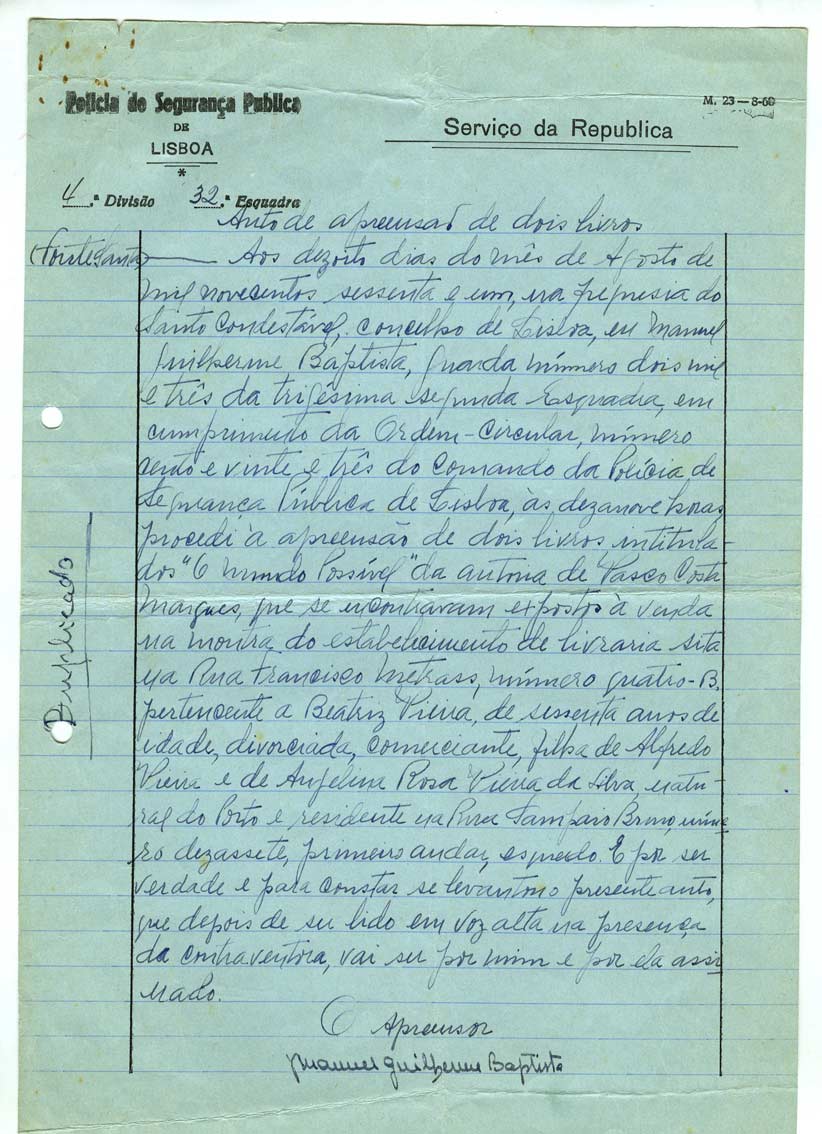 Policia de Segurança Publica
DE
LISBOA
*
M. 23—8-60
Serviço da Republica
4.ª Divisão 32.ª Esquadra
Auto de apreensão de dois livros
(Fonte Santa) Aos dezoito dias do mês de Agosto de
mil novecentos sessenta e um, na freguesia do
Santo Condestável, concelho de Lisboa, eu Manuel
Guilherme Baptista, guarda número dois mil
e três da trigésima segunda Esquadra, em
cumprimento da Ordem-Circular, número
cento e vinte e três do Comando da Polícia de
Segurança Pública de Lisboa, às dezanove horas,
procedi à apreensão de dois livros intitula-
dos "O Mundo Possível" da autoria de Vasco Costa
Marques, que se encontravam expostos à venda
na montra do estabelecimento de livraria sita
na Rua Francisco Metrass, número quatro-B,
pertencente a Beatriz Vieira, de sessenta anos de
idade, divorciada, comerciante, filha de Alfredo
Vieira e de Angelina Rosa Vieira da Silva, natu-
ral do Porto e residente na Rua Sampaio Bruno, núme-
ro dezassete, primeiro andar, esquerdo. E por ser
verdade e para constar se levantou o presente auto,
que depois de ser lido em voz alta na presença
da contraventora, vai ser por mim e por ela assi-
nado.
O Apreensor
Manuel Guilherme Baptista
Duplicado